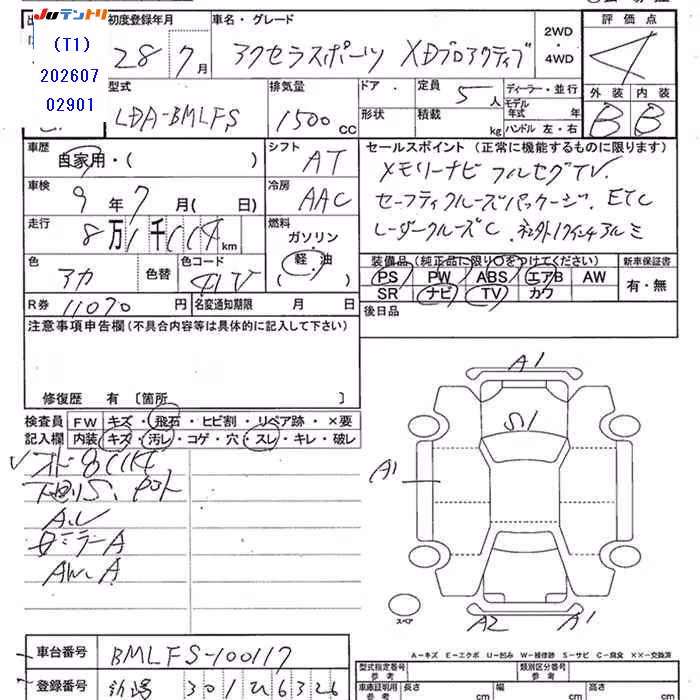 JUテントリ
(T1)
202607
02901
初度登録年月
28 7月
車名・グレード
アクセラスポーツ XDプロアクティブ
2WD
・
4WD
評価点
4
外装 内装
B B
型式
LDA-BMLFS
排気量
1500cc
ドア
形状
定員
5人
積載
kg
ディーラー・並行
モデル年式 年
ハンドル 左・右
車歴
自家用・( )
シフト
AT
車検
9年7月( 日)
冷房
AAC
走行
8万1千114km
燃料
ガソリン・
軽油
( )
色
アカ
色替
色コード
41V
R券 11070円
名変通知期限 月 日
セールスポイント (正常に機能するものに限ります)
メモリーナビ フルセグTV.
セーフティクルーズパッケージ. ETC
レーダークルーズC. 社外17インチアルミ
装備品(純正品に限り○をつけてください)
PS PW ABS エアB AW
SR ナビ TV カワ
新車保証書
有・無
後日品
注意事項申告欄(不具合内容等は具体的に記入して下さい)
修復歴 有 〔箇所 〕
検査員
記入欄
FW キズ・飛石・ヒビ割・リペア跡・×要
内装 キズ・汚レ・コゲ・穴・スレ・キレ・破レ
下廻りS.
A.U
ミラーA
AW.A
A1
S1
A1
スペア
A2
A1
A-キズ E-エクボ U-凹み W-補修跡 S-サビ C-腐食 XX-交換済
車台番号 BMLFS-100117
登録番号 新潟 301 ひ 6326
型式指定番号
参考
類別区分番号
参考
車庫証明用
参考
長さ cm
幅 cm
高さ cm